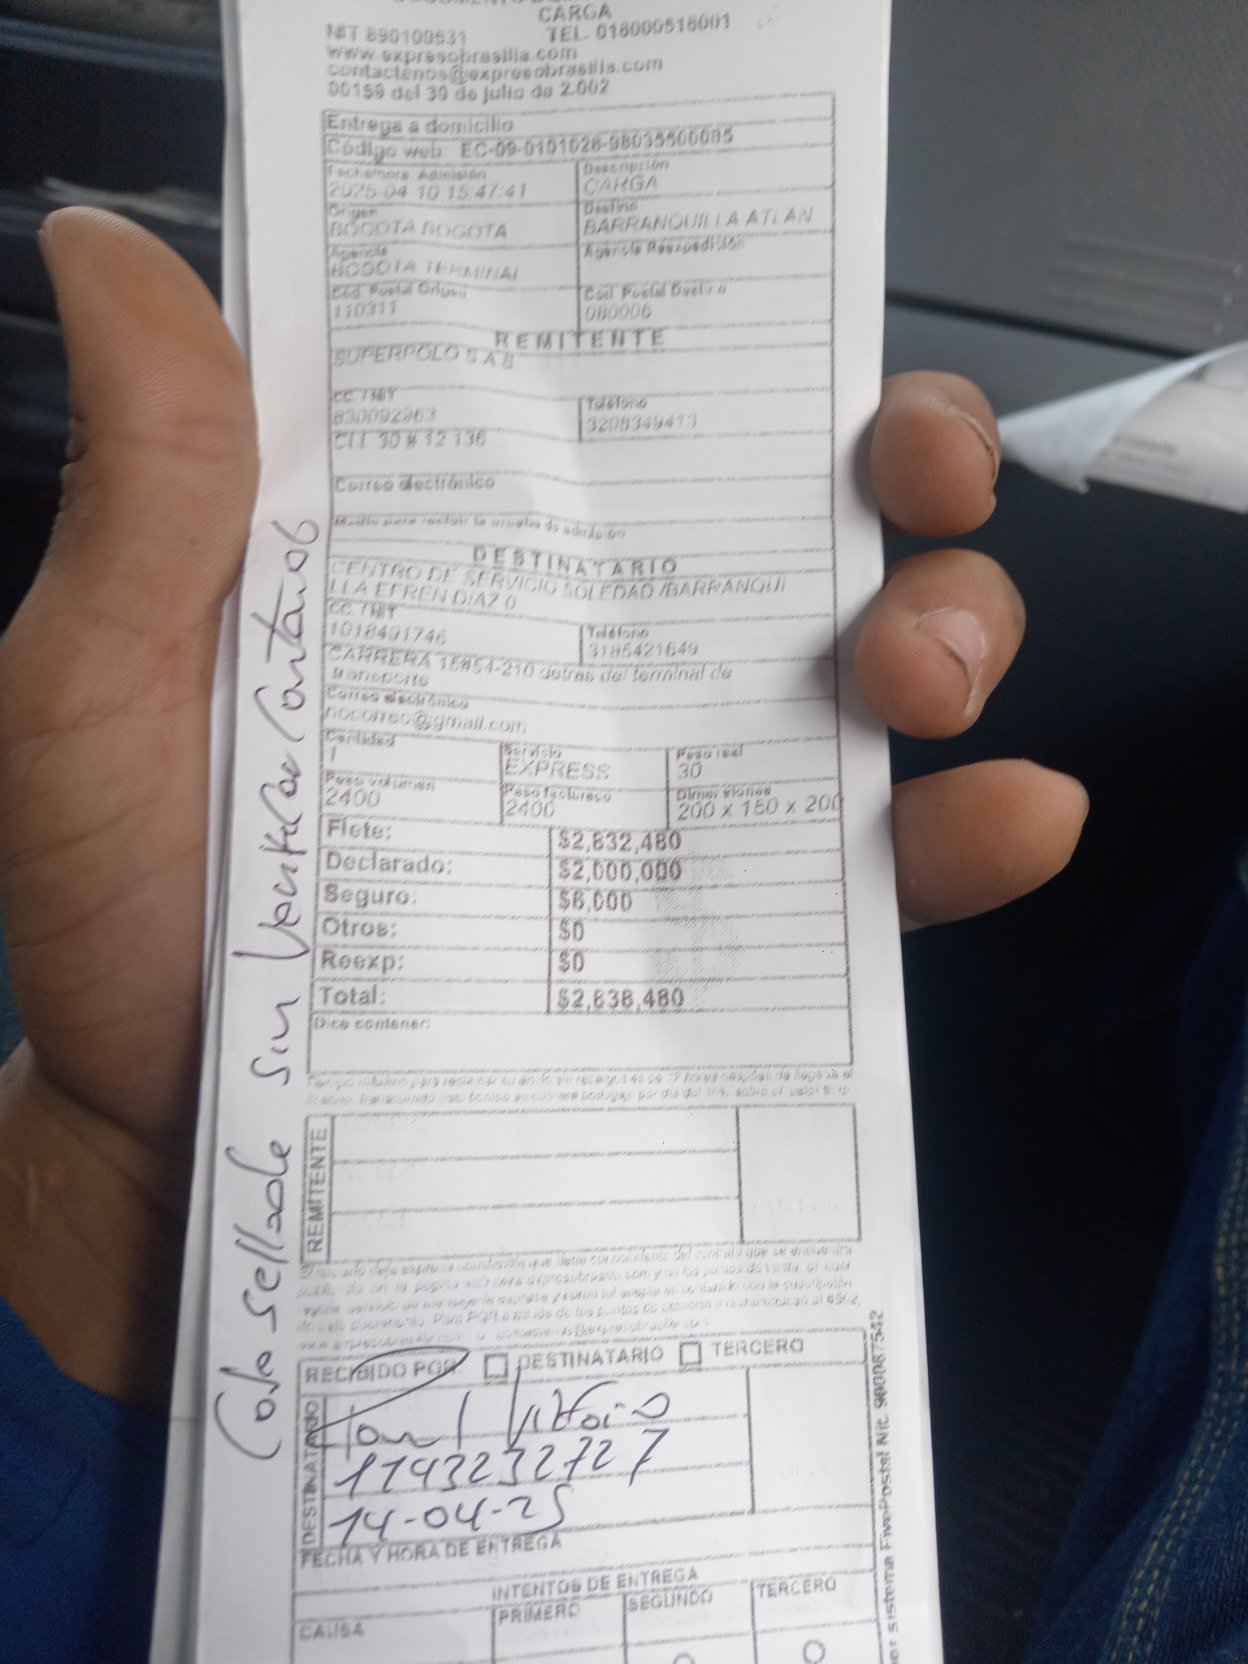 CARGA
NIT 890100531 TEL. 018000518001
www.expresobrasilia.com
contactenos@expresobrasilia.com
00159 del 30 de julio de 2.002
Entrega a domicilio
Código web: EC-09-0101028-98035500085
Fecha/hora Admisión
2025-04-10 15:47:41
Descripción
CARGA
Origen
BOGOTA BOGOTA
Destino
BARRANQUILLA ATLAN
Agencia
BOGOTA TERMINAL
Agencia Reexpedición
Cód. Postal Origen
110311
Cód. Postal Destino
080006
REMITENTE
SUPERPOLO S.A.S
CC. / NIT
830092963
Teléfono
3208349413
CLL 30 # 12 136
Correo electrónico
Medio para recibir la prueba de admisión
DESTINATARIO
CENTRO DE SERVICIO SOLEDAD /BARRANQUI
LLA EFREN DIAZ 0
CC. / NIT
1018491746
Teléfono
3185421649
CARRERA 15#54-210 detras del terminal de
transporte
Correo electrónico
nocorreo@gmail.com
Cantidad
1
Servicio
EXPRESS
Peso real
30
Peso volumen
2400
Peso facturado
2400
Dimensiones
200 x 150 x 200
Flete: $2,632,480
Declarado: $2,000,000
Seguro: $6,000
Otros: $0
Reexp: $0
Total: $2,638,480
Dice contener:
REMITENTE
RECIBIDO POR: DESTINATARIO TERCERO
DESTINATARIO
1143232727
14-04-25
FECHA Y HORA DE ENTREGA
INTENTOS DE ENTREGA
CAUSA PRIMERO SEGUNDO TERCERO
sistema FivePostal Nit. 900087542
sellado sin Verificar Contenido